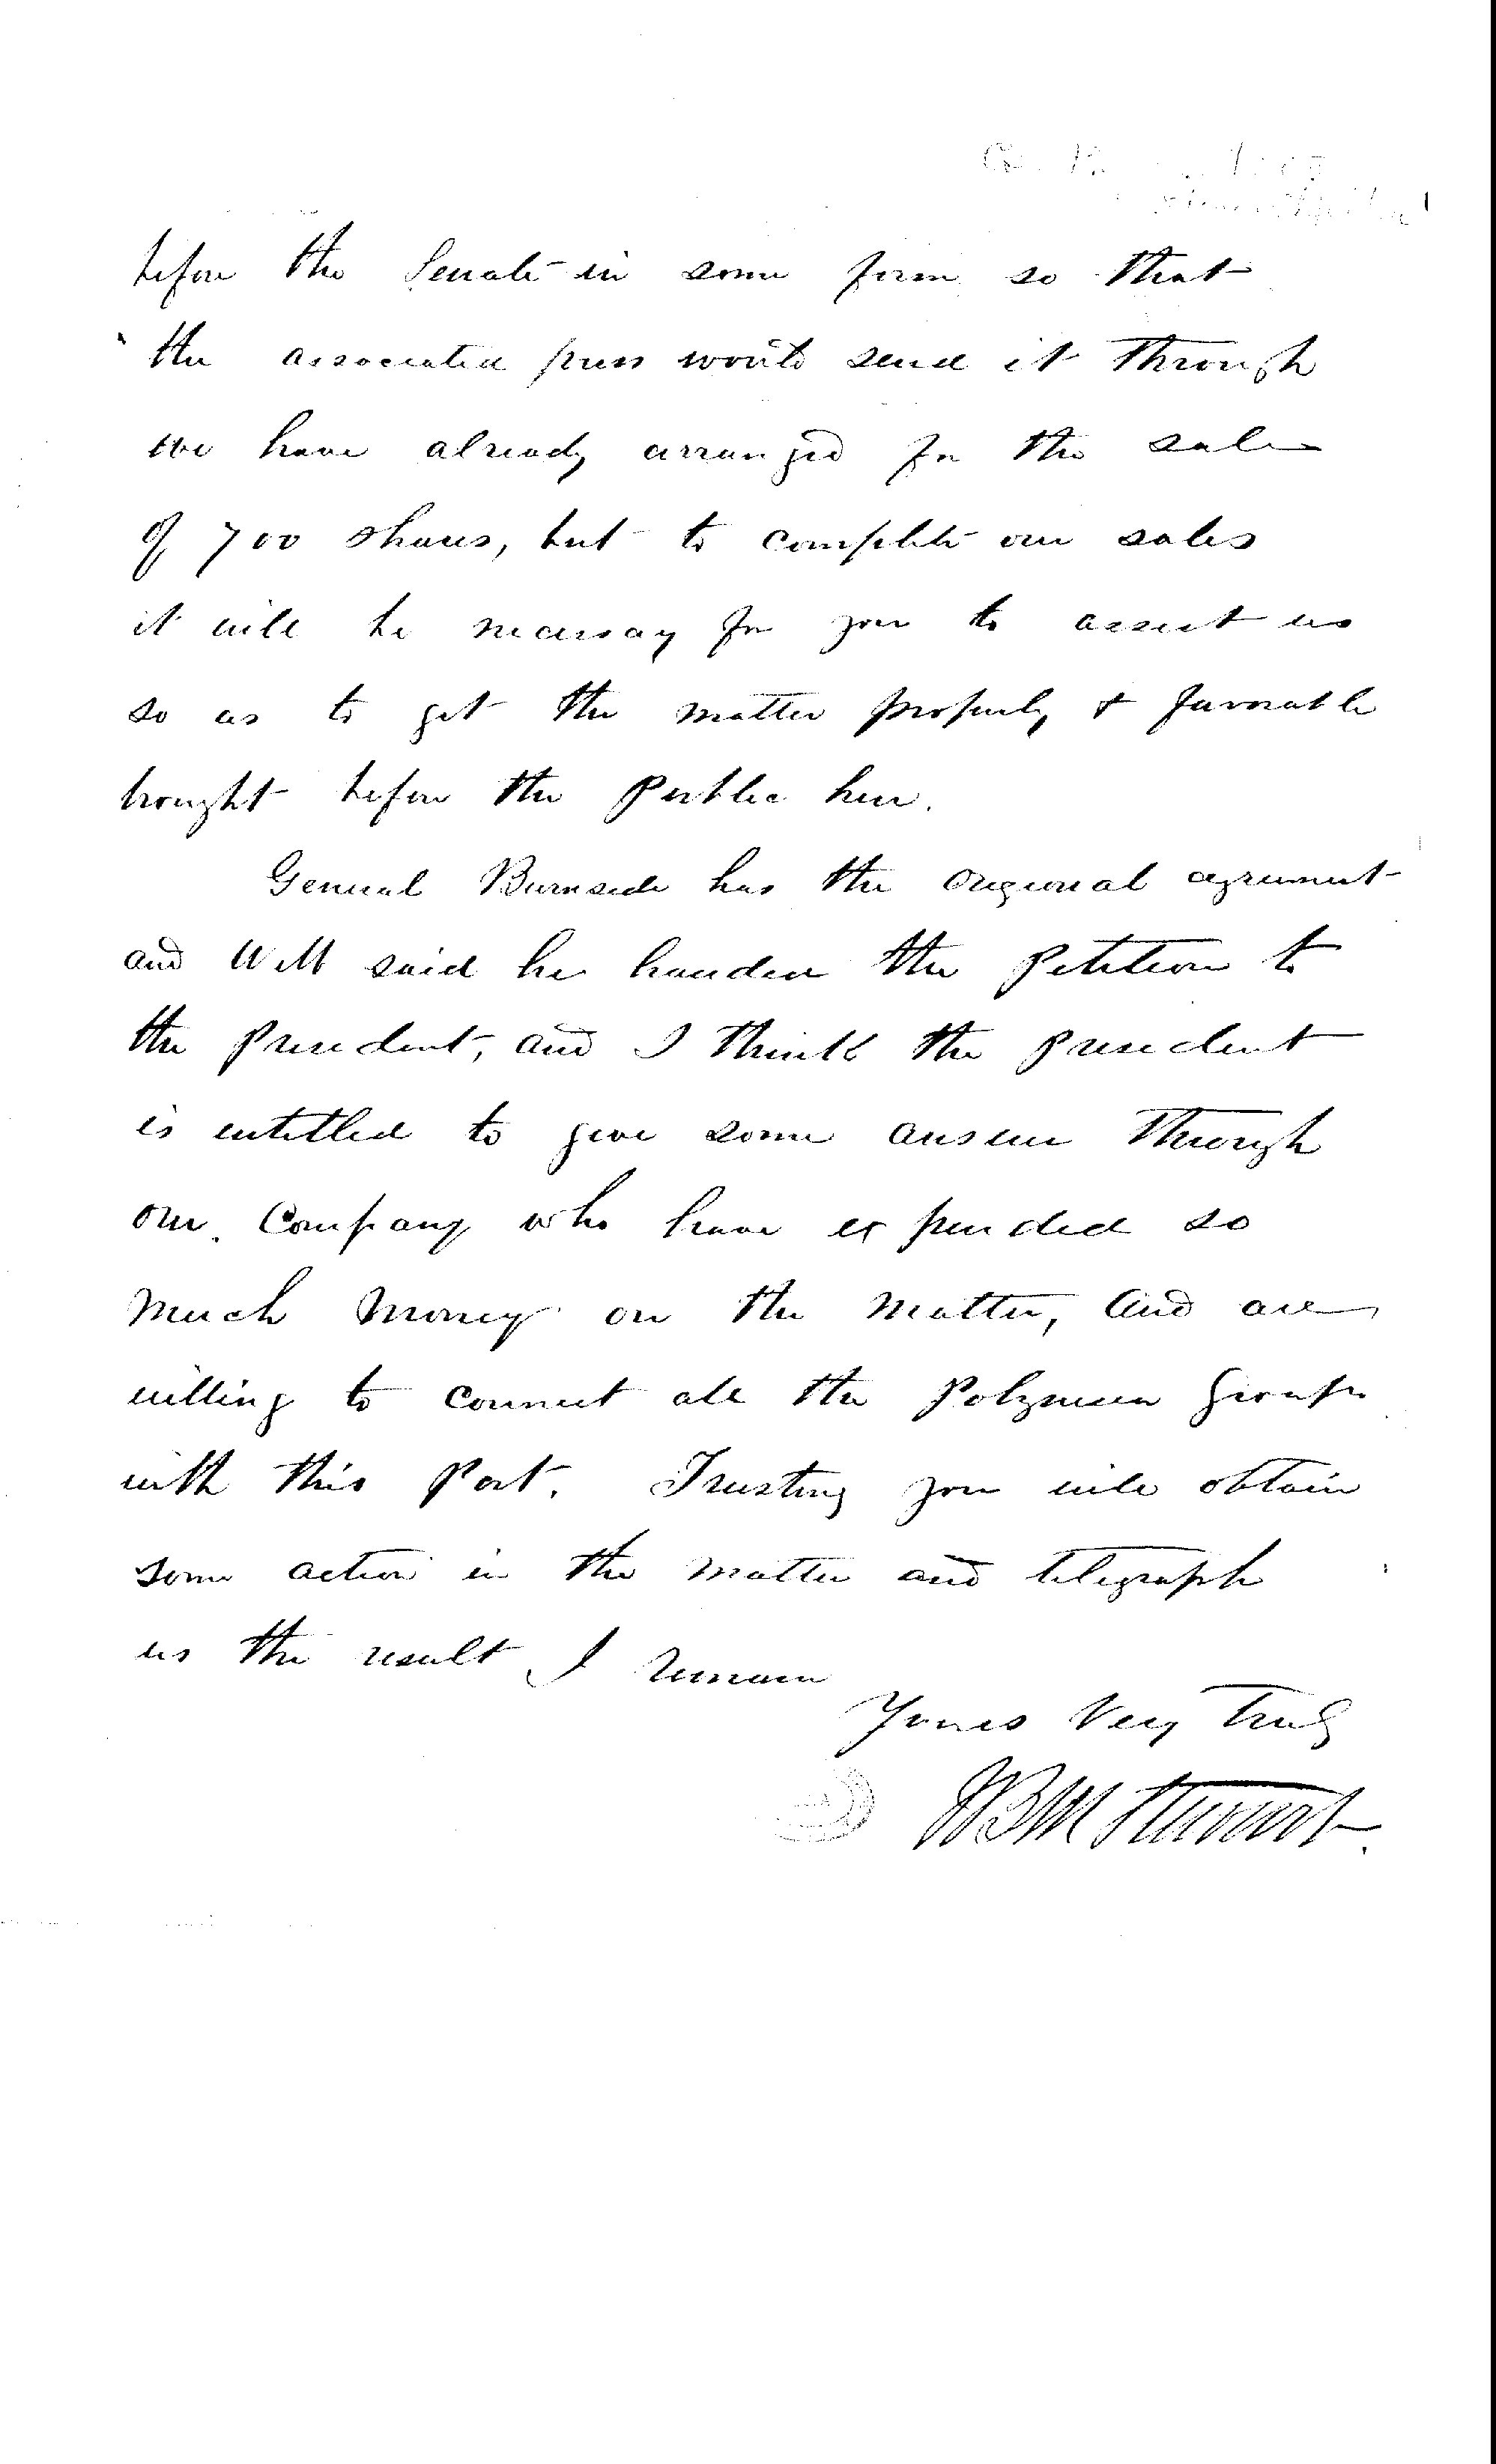 before the Senate in some form so that
the associated press would send it through
we have already arranged for the sale
of 700 shares, but to complete our sales
it will be necessary for you to assist us
so as to get the matter properly & favorable
brought before the Public here.
General Burnside has the original agreement
and Webb said he handed the Petition to
the President, and I think the President
is entitled to give some answer through
our Company who have expended so
much money on the matter, and are
willing to connect all the Polynesian Groups
with this Port. Trusting you will obtain
some action in the matter and telegraph
us the result I remain
Yours Very Truly
WBM Stewart.